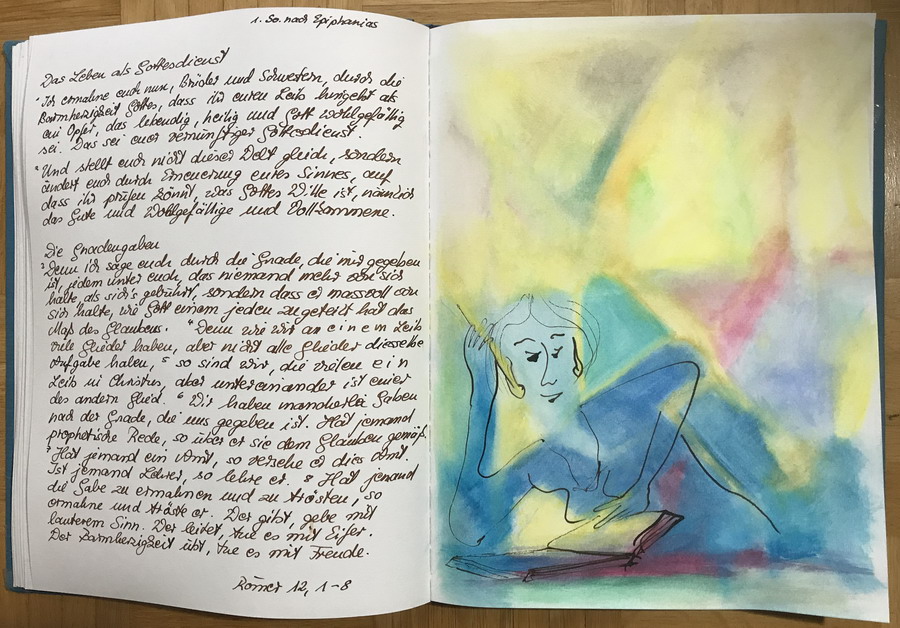 1. So. nach Epiphanias
Das Leben als Gottesdienst
¹Ich ermahne euch nun, Brüder und Schwestern, durch die
Barmherzigkeit Gottes, dass ihr euren Leib hingebt als
ein Opfer, das lebendig, heilig und Gott wohlgefällig
sei. Das sei euer vernünftiger Gottesdienst.
²Und stellt euch nicht dieser Welt gleich, sondern
ändert euch durch Erneuerung eures Sinnes, auf
dass ihr prüfen könnt, was Gottes Wille ist, nämlich
das Gute und Wohlgefällige und Vollkommene.
Die Gnadengaben
³Denn ich sage euch durch die Gnade, die mir gegeben
ist, jedem unter euch, das niemand mehr von sich
halte, als sich's gebührt, sondern dass er massvoll von
sich halte, wie Gott einem jeden zugeteilt hat das
Maß des Glaubens. ⁴Denn wie wir an einem Leib
viele Glieder haben, aber nicht alle Glieder dieselbe
Aufgabe haben, ⁵so sind wir, die vielen ein
Leib in Christus, aber untereinander ist einer
des andern Glied. ⁶Wir haben mancherlei Gaben
nach der Gnade, die uns gegeben ist. Hat jemand
prophetische Rede, so übe er sie dem Glauben gemäß.
⁷Hat jemand ein Amt, so versehe er dies Amt.
Ist jemand Lehrer, so lehre er. ⁸Hat jemand
die Gabe zu ermahnen und zu trösten, so
ermahne und tröste er. Der gibt, gebe mit
lauterem Sinn. Der leitet, tue es mit Eifer.
Der Barmherzigkeit übt, tue es mit Freude.
Römer 12, 1-8